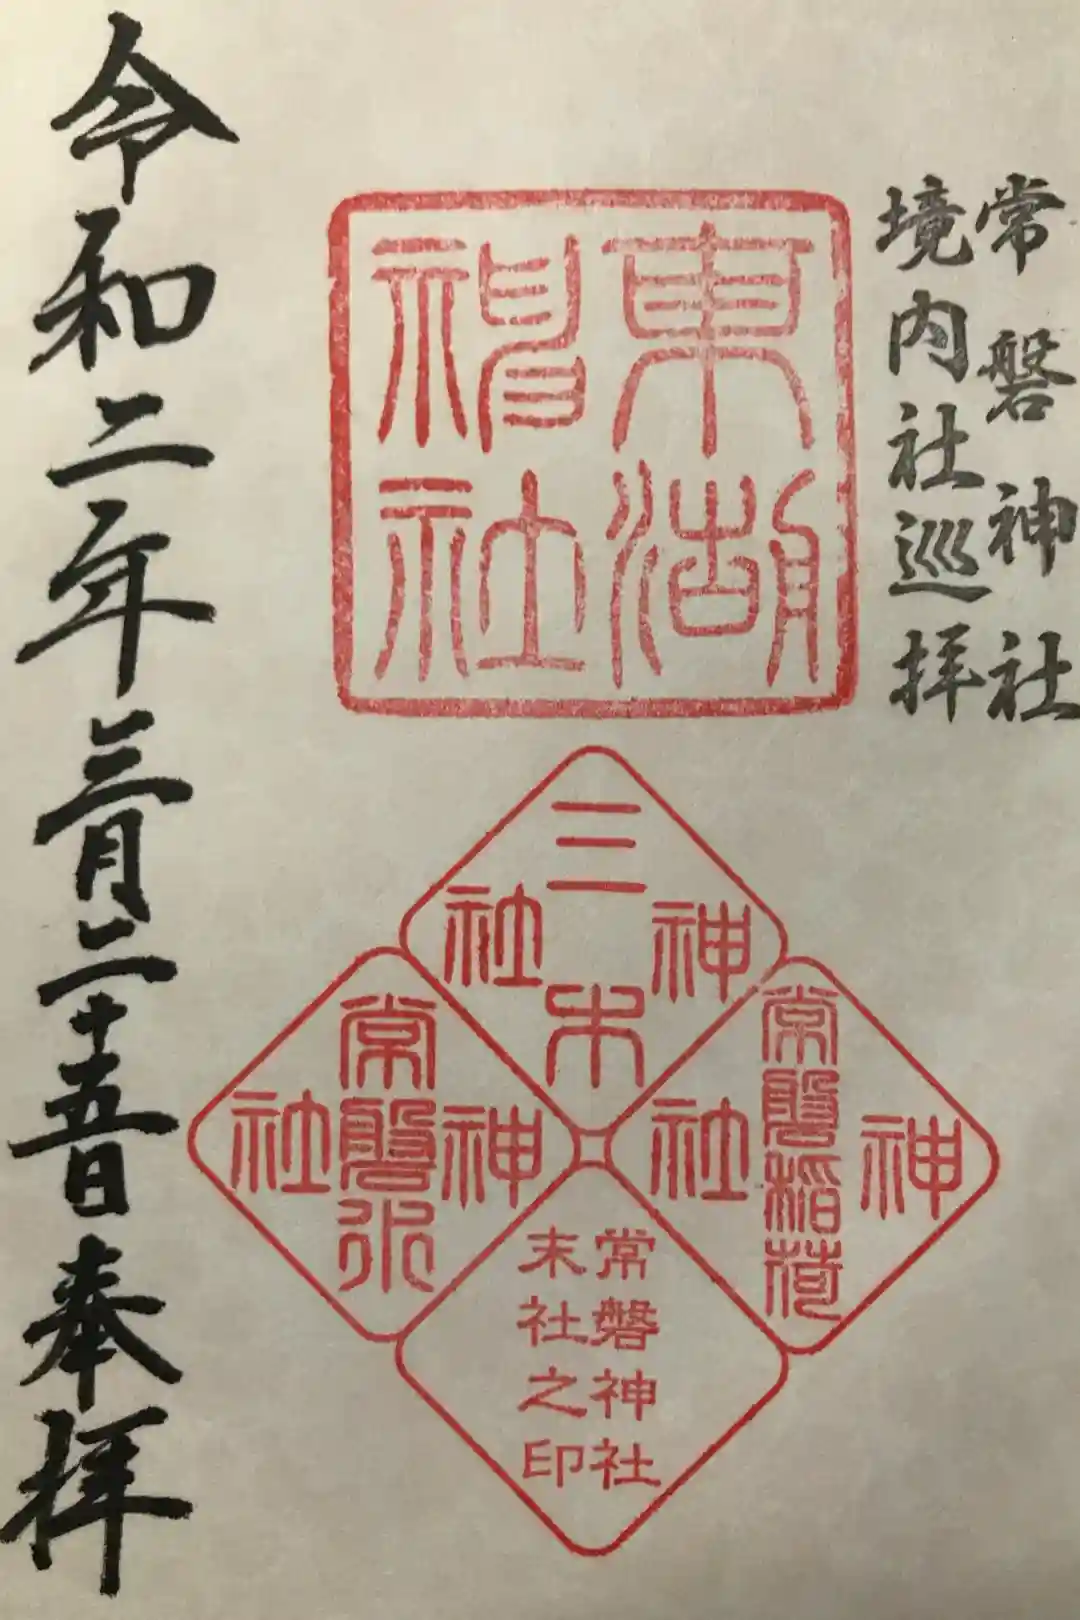 常磐神社
境内社巡拝
東湖
神社
三木
神社
常磐稲荷
神社
常磐
神社
常磐神社
末社之印
令和二年三月二十五日奉拝